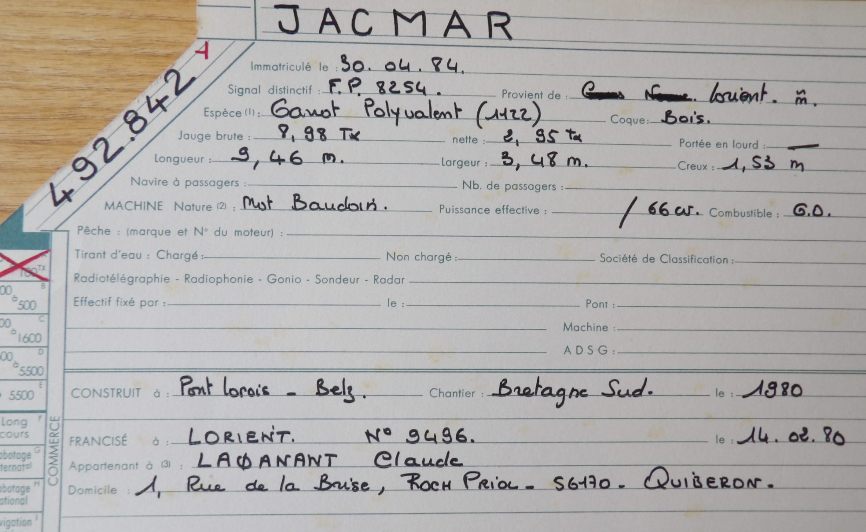 JACMAR
492.842 A
Immatriculé le : 30.04.84.
Signal distinctif : F.P. 8254. Provient de : Lorient. m̃.
Espèce (1) : Canot Polyvalent (1122) Coque : Bois.
Jauge brute : 8,98 Tx nette : 2,95 Tx Portée en lourd : —
Longueur : 9,46 m. Largeur : 3,48 m. Creux : 1,53 m
Navire à passagers : Nb. de passagers :
MACHINE Nature (2) : Mot Baudoin. Puissance effective : / 66 cv. Combustible : G.O.
Pêche : (marque et N° du moteur) :
Tirant d'eau : Chargé : Non chargé : Société de Classification :
Radiotélégraphie - Radiophonie - Gonio - Sondeur - Radar
Effectif fixé par : le : Pont :
Machine :
A D S G :
CONSTRUIT à : Pont Lorois - Belz. Chantier : Bretagne Sud. le : 1980
FRANCISÉ à : LORIENT. N° 9496. le : 14.02.80
Appartenant à (3) : Claude
Domicile : 1, Rue de la Brise, ROCH PRIOL - 56170 - QUIBERON.
100TX
500 B
1600 C
5500 D
5500 E
Long F
cours
COMMERCE